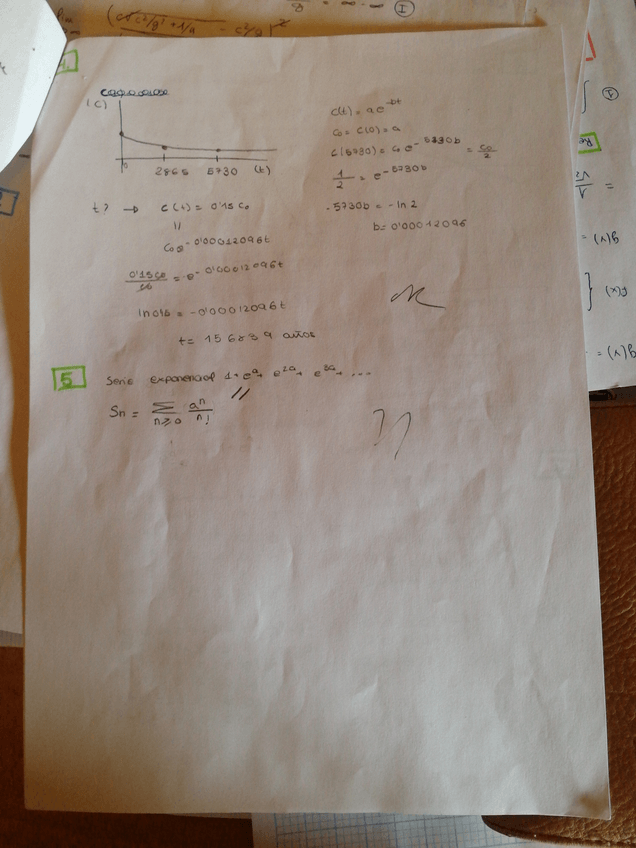 (C)
0
2865
5730
(t)
c(t) = a e^-bt
c₀ = c(0) = a
c(5730) = c₀ e^-5730b = c₀/2
1/2 = e^-5730b
-5730b = -ln 2
b = 0'00012096
t? → c(t) = 0'15 c₀
||
c₀ e^-0'00012096t
0'15c₀/c₀ = e^-0'00012096t
ln 0'15 = -0'00012096t
t = 15683'9 años
5
Serie exponencial 1 + e^a + e^2a + e^3a + ...
Sn = ∑ n≥0 a^n/n!